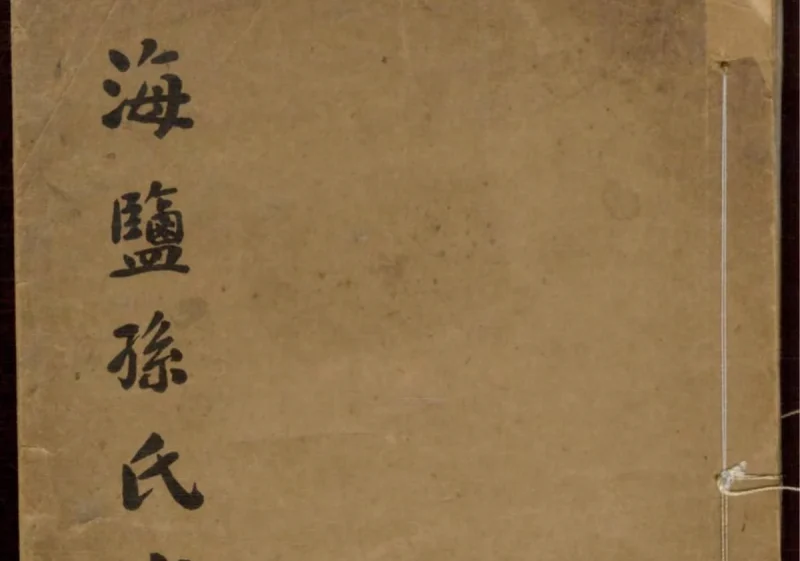 海鹽孫氏